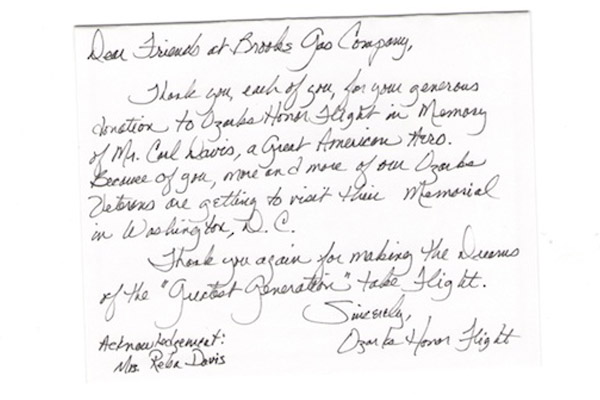 Dear Friends at Brooks Gas Company,
Thank you, each of you, for your generous
donation to Ozarks Honor Flight in Memory
of Mr. Carl Davis, a Great American Hero.
Because of you, more and more of our Ozarks
Veterans are getting to visit their Memorial
in Washington, D.C.
Thank you again for making the Dreams
of the "Greatest Generation" take Flight.
Sincerely,
Ozarks Honor Flight
Acknowledgement:
Mrs. Reba Davis